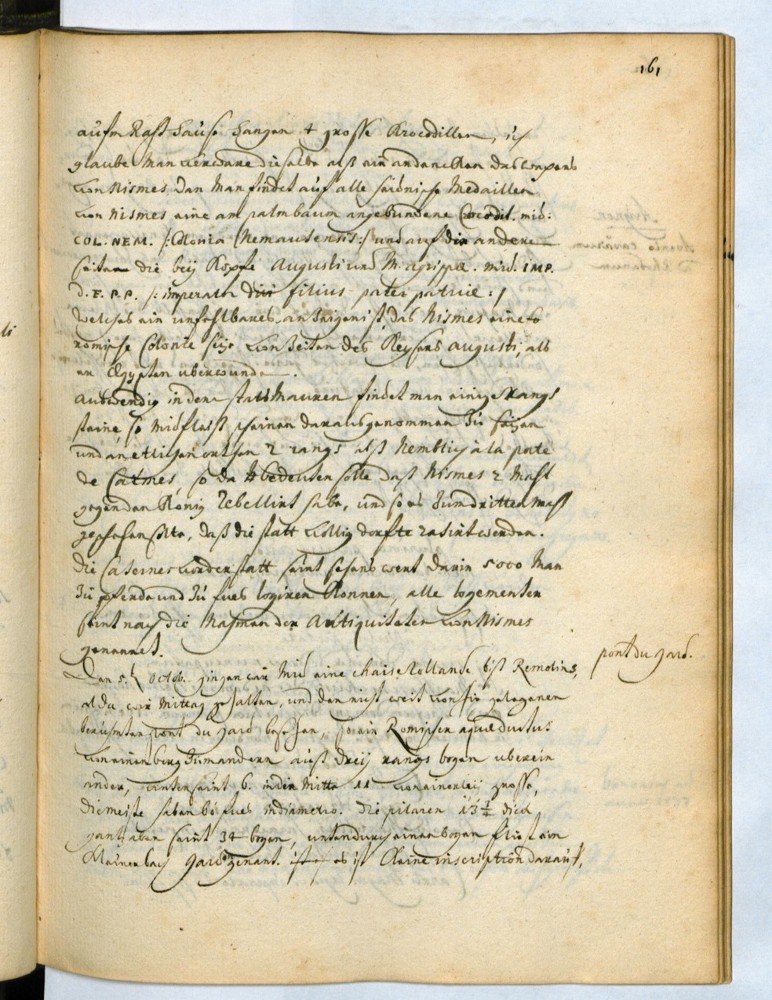 161
aufm Raht hause hangen 4 grosse Krocodillen, ich
glaube man dieselbe alß ein andencken des wapens
von Nismes. Dan man findet auf alle heidnische Medaillen
von Nismes eine am palmbaum angebundene Crocodil. mit:
COL. NEM. /: Colonia Nemausensis :/ und auf die andere
seiten die beij Köpfe Augusti und M. Agrippæ. mit. IMP.
D. F. P. P. /: imperator divi filius pater patriæ :/
welches ein unfehlbares anzeigen ist, das Nismes eine
römische Colonie seije von Zeiten des Keysers Augusti, als
er Egypten uberwunden.
Auswendig in den stattMauren findet man einige rangs
steine, so mit fleiß scheinen daraus genommen zu seijn
und an etlichen orthen 2 rangs alß Nemblich à la porte
de Calmes, so da bedeuten solle daß Nismes 2 Mahl
gegen den König rebellirt habe, und so es zum dritten Mahl
geschehen solte, daß die statt völlig dorfte rasirt werden.
Die Casernes vor der statt seint sehens wert darin 5000 Man
zu pferde und zu fues logiren können, alle logementer
seint nach die Nahmen der Antiquiteten von Nismes
genennet.
Den 5. Octob. gingen wir mit eine chaise rollande bist Remolins,
alda wir Mittag gehalten, und den nicht weit von hir gelegenen
berühmten pont du gard besehen, so ein Romischen aquæductus
von einen berg zum andern auß dreij rangs bogen uber ein
ander, unten seint 6. in der Mitte 11 von einerleij grosse,
die meiste haben 60 fues in diametro. Die pilaren 13½ dick
gantz oben seint 34 bogen, unten durch einen bogen fliest ein
kleiner bach gard genant. es ist kleine inscription darauf,
pont du gard.